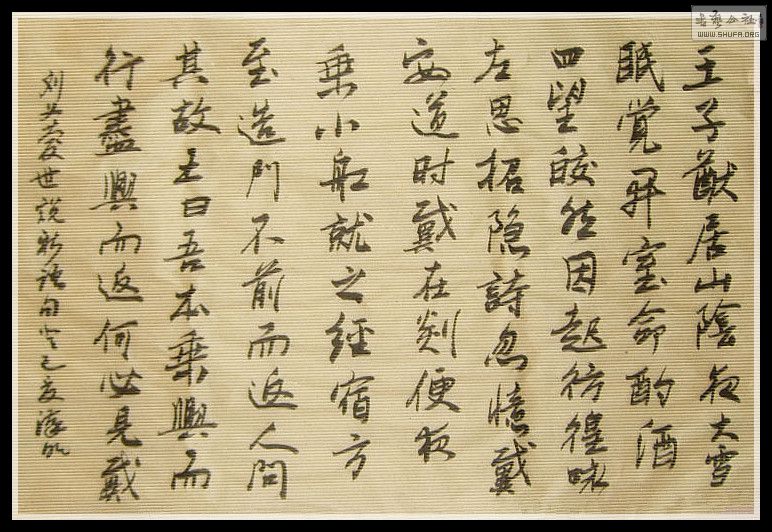 王子猷居山陰夜大雪
眠覺开室命酌酒
四望皎然因起彷徨咏
左思招隐詩忽憶戴
安道时戴在剡便夜
乘小船就之經宿方
至造门不前而返人问
其故王曰吾本乘興而
行盡興而返何必見戴
刘义慶世説新語句
书艺公社
WWW.SHUFA.ORG